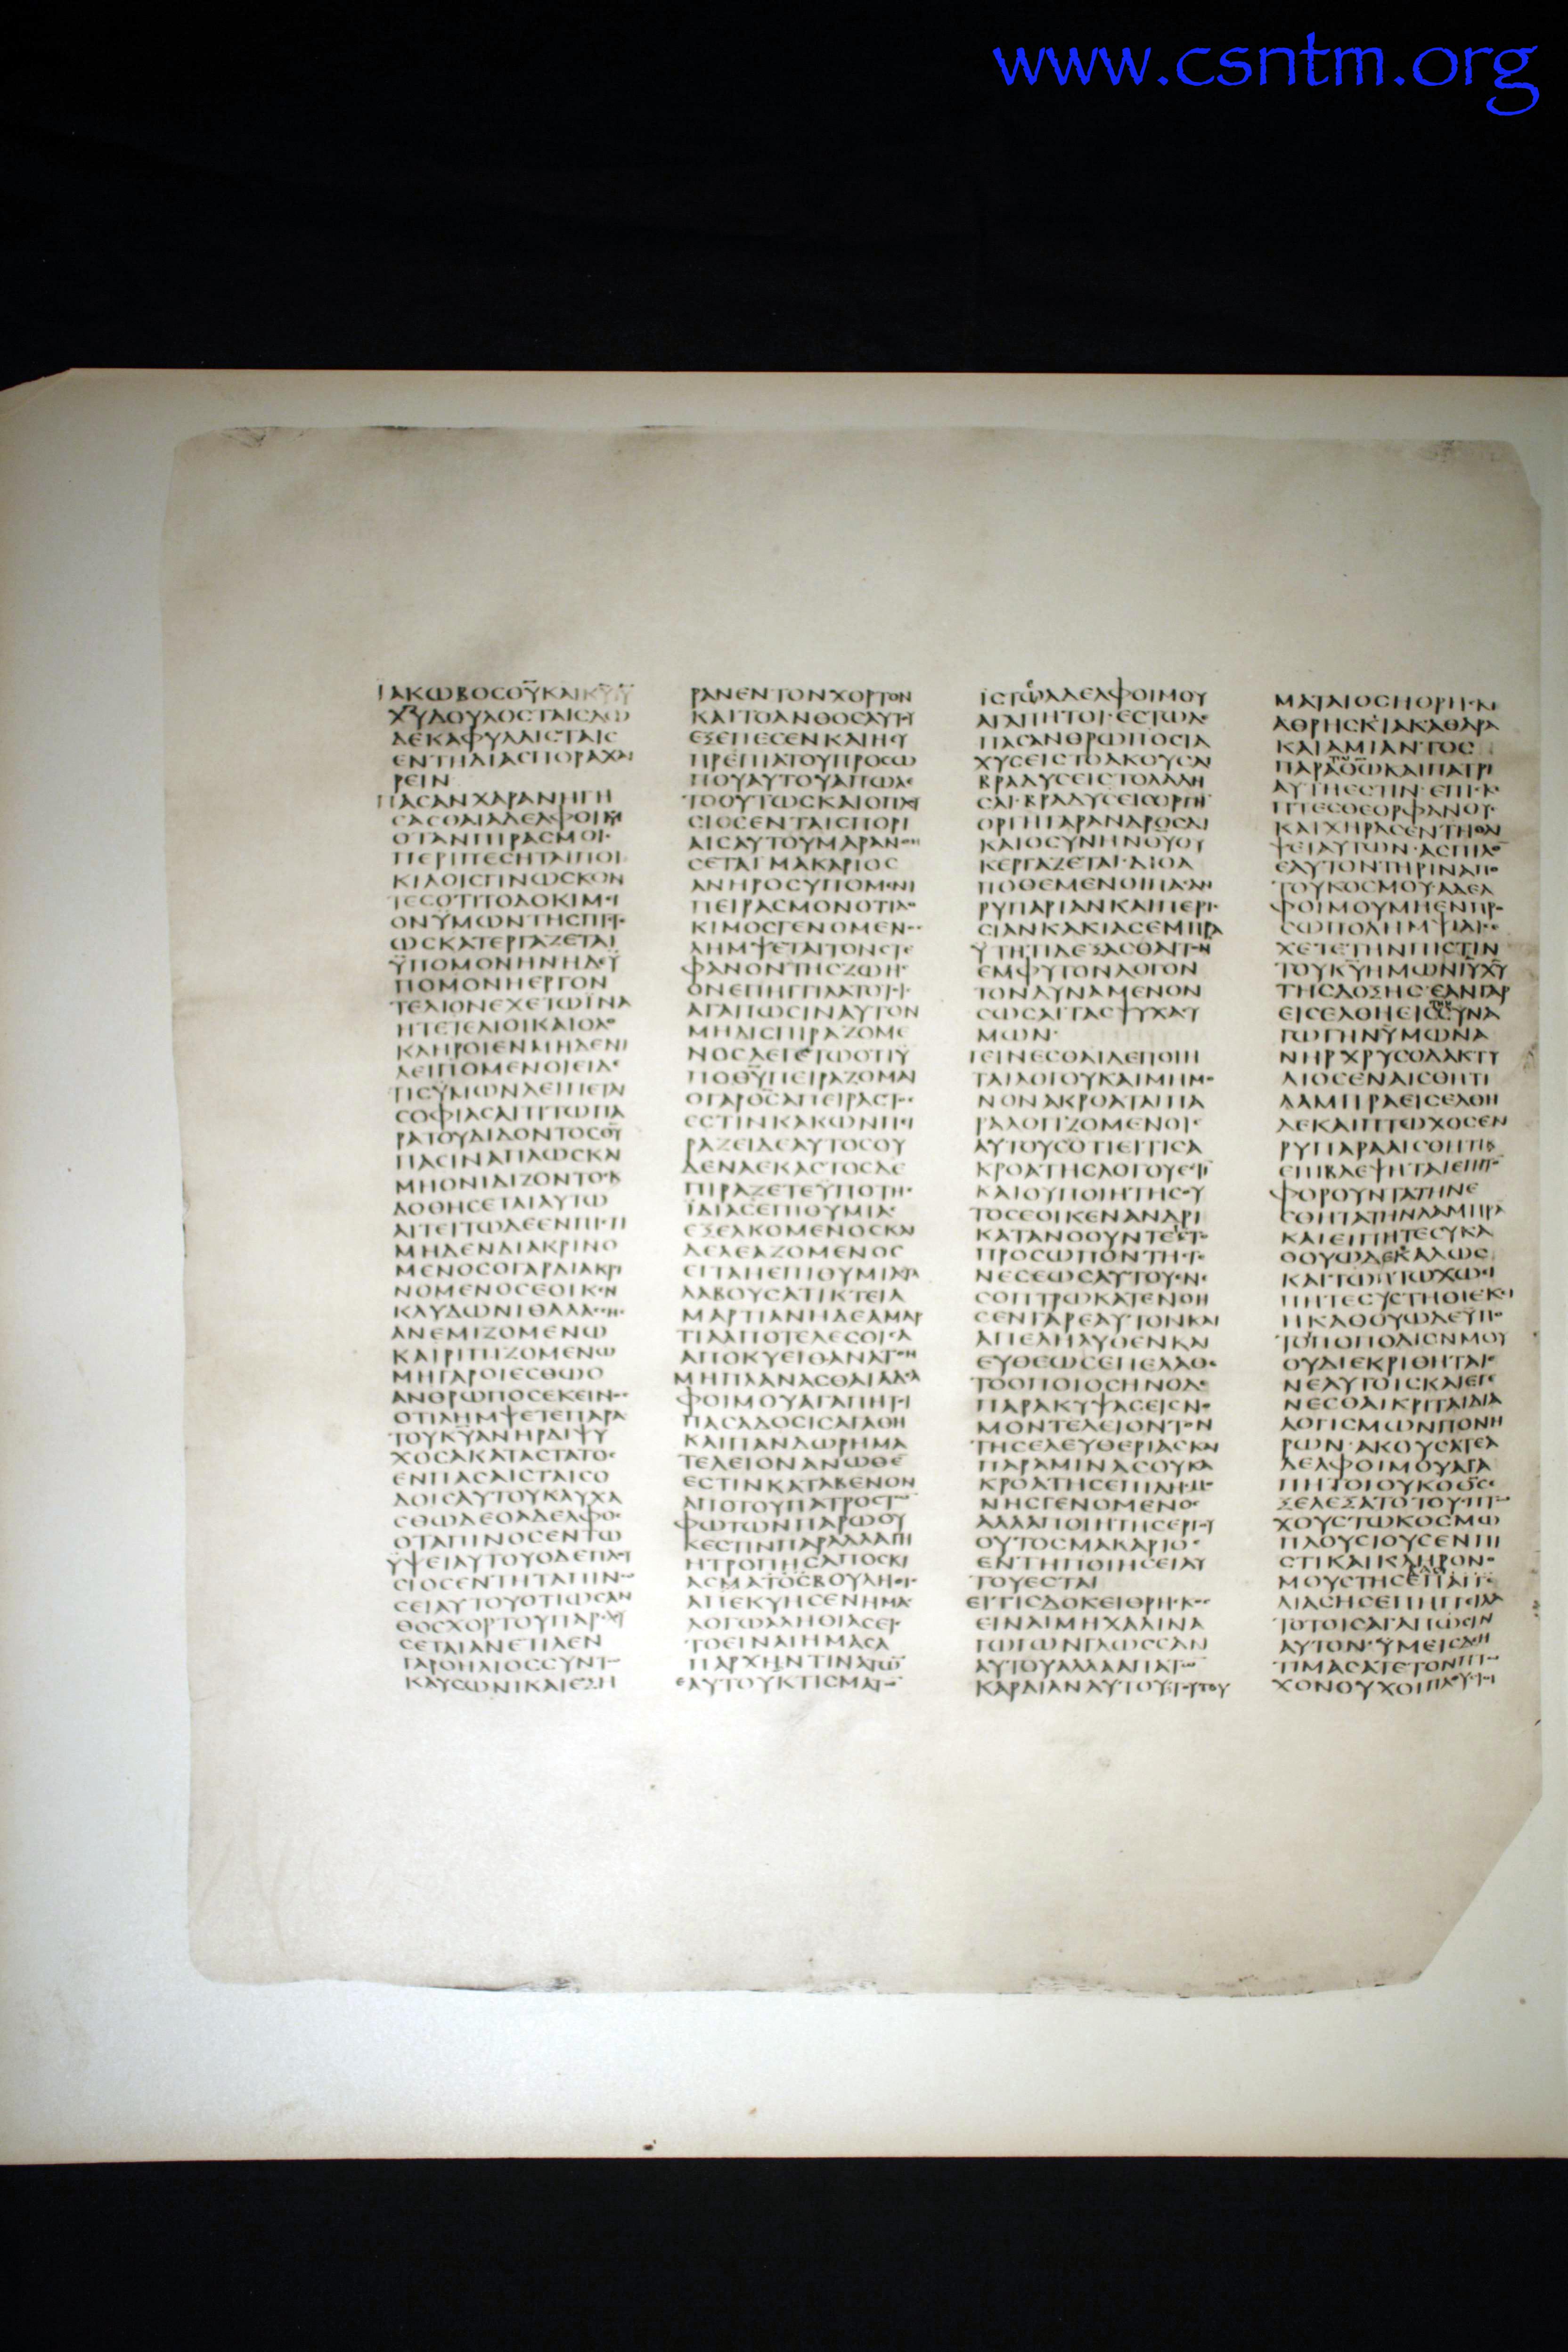 www.csntm.org
ΙΑΚΩΒΟCΘΥΚΑΙΚΥΙΥ
ΧΥΔΟΥΛΟCΤΑΙCΔΩ
ΔΕΚΑΦΥΛΑΙCΤΑΙC
ΕΝΤΗΔΙΑCΠΟΡΑΧΑΙ
ΡΕΙΝ
ΠΑCΑΝΧΑΡΑΝΗΓΗ
CΑCΘΑΙΑΔΕΛΦΟΙΜ
ΟΤΑΝΠΙΡΑCΜΟΙ
ΠΕΡΙΠΕCΗΤΑΙΠΟΙ
ΚΙΛΟΙCΓΙΝΩCΚΟΝ
ΤΕCΟΤΙΤΟΔΟΚΙΜΙ
ΟΝΥΜΩΝΤΗCΠΙ
ΩCΚΑΤΕΡΓΑΖΕΤΑΙ
ΫΠΟΜΟΝΗΝΗΔΕΫ
ΠΟΜΟΝΗΕΡΓΟΝ
ΤΕΛΙΟΝΕΧΕΤΩΙΝΑ
ΗΤΕΤΕΛΙΟΙΚΑΙΟΛΟ
ΚΛΗΡΟΙΕΝΜΗΔΕΝΙ
ΛΕΙΠΟΜΕΝΟΙΕΙΔΕ
ΤΙCΥΜΩΝΛΕΙΠΕΤΑΙ
CΟΦΙΑCΑΙΤΙΤΩΠΑ
ΡΑΤΟΥΔΙΔΟΝΤΟCΘΥ
ΠΑCΙΝΑΠΛΩCΚΑΙ
ΜΗΟΝΙΔΙΖΟΝΤΟCΚ
ΔΟΘΗCΕΤΑΙΑΥΤΩ
ΑΙΤΕΙΤΩΔΕΕΝΠΙCΤΙ
ΜΗΔΕΝΔΙΑΚΡΙΝΟ
ΜΕΝΟCΟΓΑΡΔΙΑΚΡΙ
ΝΟΜΕΝΟCΕΟΙΚΕΝ
ΚΛΥΔΩΝΙΘΑΛΑCCΗC
ΑΝΕΜΙΖΟΜΕΝΩ
ΚΑΙΡΙΠΙΖΟΜΕΝΩ
ΜΗΓΑΡΟΙΕCΘΩΟ
ΑΝΘΡΩΠΟCΕΚΕΙΝΟC
ΟΤΙΛΗΜΨΕΤΕΠΑΡΑ
ΤΟΥΚΥΑΝΗΡΔΙΨΥ
ΧΟCΑΚΑΤΑCΤΑΤΟC
ΕΝΠΑCΑΙCΤΑΙCΟ
ΔΟΙCΑΥΤΟΥΚΑΥΧΑ
CΘΩΔΕΟΑΔΕΛΦΟC
ΟΤΑΠΙΝΟCΕΝΤΩ
ΫΨΕΙΑΥΤΟΥΟΔΕΠΛΟΥ
CΙΟCΕΝΤΗΤΑΠΙΝΩ
CΕΙΑΥΤΟΥΟΤΙΩCΑΝ
ΘΟCΧΟΡΤΟΥΠΑΡΕΛΕΥ
CΕΤΑΙΑΝΕΤΙΛΕΝ
ΓΑΡΟΗΛΙΟCCΥΝΤΩ
ΚΑΥCΩΝΙΚΑΙΕΞΗ
ΡΑΝΕΝΤΟΝΧΟΡΤΟΝ
ΚΑΙΤΟΑΝΘΟCΑΥΤΟΥ
ΕΞΕΠΕCΕΝΚΑΙΗΕΥ
ΠΡΕΠΙΑΤΟΥΠΡΟCΩ
ΠΟΥΑΥΤΟΥΑΠΩΛΕ
ΤΟΟΥΤΩCΚΑΙΟΠΛΟΥ
CΙΟCΕΝΤΑΙCΠΟΡΙ
ΑΙCΑΥΤΟΥΜΑΡΑΝΘΗ
CΕΤΑΙΜΑΚΑΡΙΟC
ΑΝΗΡΟCΥΠΟΜΕΝΙ
ΠΕΙΡΑCΜΟΝΟΤΙΔΟ
ΚΙΜΟCΓΕΝΟΜΕΝΟC
ΛΗΜΨΕΤΑΙΤΟΝCΤΕ
ΦΑΝΟΝΤΗCΖΩΗC
ΟΝΕΠΗΓΓΙΛΑΤΟΤΟΙC
ΑΓΑΠΩCΙΝΑΥΤΟΝ
ΜΗΔΙCΠΙΡΑΖΟΜΕ
ΝΟCΛΕΓΕΤΩΟΤΙΫ
ΠΟΘΥΠΕΙΡΑΖΟΜΑΙ
ΟΓΑΡΘCΑΠΕΙΡΑCΤΟC
ΕCΤΙΝΚΑΚΩΝΠΙ
ΡΑΖΕΙΔΕΑΥΤΟCΟΥ
ΔΕΝΑΕΚΑCΤΟCΔΕ
ΠΙΡΑΖΕΤΕΥΠΟΤΗC
ΪΔΙΑCΕΠΙΘΥΜΙΑC
ΕΞΕΛΚΟΜΕΝΟCΚΑΙ
ΔΕΛΕΑΖΟΜΕΝΟC
ΕΙΤΑΗΕΠΙΘΥΜΙΑCΥΛ
ΛΑΒΟΥCΑΤΙΚΤΕΙΑ
ΜΑΡΤΙΑΝΗΔΕΑΜΑΡ
ΤΙΑΑΠΟΤΕΛΕCΘΙCΑ
ΑΠΟΚΥΕΙΘΑΝΑΤΟΝ
ΜΗΠΛΑΝΑCΘΑΙΑΔΕΛ
ΦΟΙΜΟΥΑΓΑΠΗΤΟΙ
ΠΑCΑΔΟCΙCΑΓΑΘΗ
ΚΑΙΠΑΝΔΩΡΗΜΑ
ΤΕΛΕΙΟΝΑΝΩΘΕ
ΕCΤΙΝΚΑΤΑΒΕΝΟΝ
ΑΠΟΤΟΥΠΑΤΡΟCΤΩ
ΦΩΤΩΝΠΑΡΩΟΥ
ΚΕCΤΙΝΠΑΡΑΛΛΑΓΗ
ΗΤΡΟΠΗCΑΠΟCΚΙ
ΑCΜΑΤΟCΒΟΥΛΗΘΙC
ΑΠΕΚΥΗCΕΝΗΜΑC
ΛΟΓΩΑΛΗΘΙΑCΕΙC
ΤΟΕΙΝΑΙΗΜΑCΑ
ΠΑΡΧΗΝΤΙΝΑΤΩ
ΕΑΥΤΟΥΚΤΙCΜΑΤΩ
ΙCΤΩΑΔΕΛΦΟΙΜΟΥ
ΑΓΑΠΗΤΟΙ·ΕCΤΩΔΕ
ΠΑCΑΝΘΡΩΠΟCΤΑ
ΧΥCΕΙCΤΟΑΚΟΥCΑΙ
ΒΡΑΔΥCΕΙCΤΟΛΑΛΗ
CΑΙ·ΒΡΑΔΥCΕΙCΟΡΓΗ
ΟΡΓΗΓΑΡΑΝΔΡΟCΔΙ
ΚΑΙΟCΥΝΗΝΘΥΟΥ
ΚΕΡΓΑΖΕΤΑΙ·ΔΙΟΑ
ΠΟΘΕΜΕΝΟΙΠΑCΑΝ
ΡΥΠΑΡΙΑΝΚΑΙΠΕΡΙC
CΙΑΝΚΑΚΙΑCΕΜΠΡΑ
ΥΤΗΤΙΔΕΞΑCΘΑΙΤΟΝ
ΕΜΦΥΤΟΝΛΟΓΟΝ
ΤΟΝΔΥΝΑΜΕΝΟΝ
CΩCΑΙΤΑCΨΥΧΑCΥ
ΜΩΝ·
ΓΕΙΝΕCΘΑΙΔΕΠΟΙΗ
ΤΑΙΛΟΓΟΥΚΑΙΜΗΜΟ
ΝΟΝΑΚΡΟΑΤΑΙΠΑ
ΡΑΛΟΓΙΖΟΜΕΝΟΙ
ΑΥΤΟΥCΟΤΙΕΙΤΙCΑ
ΚΡΟΑΤΗCΛΟΓΟΥΕCΤΙ
ΚΑΙΟΥΠΟΙΗΤΗCΟΥ
ΤΟCΕΟΙΚΕΝΑΝΔΡΙ
ΚΑΤΑΝΟΟΥΝΤΕΙΤΟ
ΠΡΟCΩΠΟΝΤΗCΓΕ
ΝΕCΕΩCΑΥΤΟΥΕΝΕ
CΟΠΤΡΩΚΑΤΕΝΟΗ
CΕΝΓΑΡΕΑΥΤΟΝΚΑΙ
ΑΠΕΛΗΛΥΘΕΝΚΑΙ
ΕΥΘΕΩCΕΠΕΛΑΘΕ
ΤΟΟΠΟΙΟCΗΝΟΔΕ
ΠΑΡΑΚΥΨΑCΕΙCΝΟ
ΜΟΝΤΕΛΕΙΟΝΤΟΝ
ΤΗCΕΛΕΥΘΕΡΙΑCΚΑΙ
ΠΑΡΑΜΙΝΑCΟΥΚΑ
ΚΡΟΑΤΗCΕΠΙΛΗCΜΟ
ΝΗCΓΕΝΟΜΕΝΟC
ΑΛΛΑΠΟΙΗΤΗCΕΡΓΟΥ
ΟΥΤΟCΜΑΚΑΡΙΟC
ΕΝΤΗΠΟΙΗCΕΙΑΥ
ΤΟΥΕCΤΑΙ
ΕΙΤΙCΔΟΚΕΙΘΡΗCΚΟC
ΕΙΝΑΙΜΗΧΑΛΙΝΑ
ΓΩΓΩΝΓΛΩCCΑΝ
ΑΥΤΟΥΑΛΛΑΑΠΑΤΩ
ΚΑΡΔΙΑΝΑΥΤΟΥΤΟΥΤΟΥ
ΜΑΤΑΙΟCΗΘΡΗCΚΙ
ΑΘΡΗCΚΙΑΚΑΘΑΡΑ
ΚΑΙΑΜΙΑΝΤΟC
ΠΑΡΑΘΩΚΑΙΠΑΤΡΙ
ΑΥΤΗΕCΤΙΝ·ΕΠΙCΚΕ
ΠΤΕCΘΕΟΡΦΑΝΟΥC
ΚΑΙΧΗΡΑCΕΝΤΗΘΛΙ
ΨΕΙΑΥΤΩΝ·ΑCΠΙΛΟ
ΕΑΥΤΟΝΤΗΡΙΝΑΠΟ
ΤΟΥΚΟCΜΟΥ·ΑΔΕΛ
ΦΟΙΜΟΥΜΗΕΝΠΡΟ
CΩΠΟΛΗΜΨΙΑΙC
ΧΕΤΕΤΗΝΠΙCΤΙΝ
ΤΟΥΚΥΗΜΩΝΙΥΧΥ
ΤΗCΔΟΞΗC·ΕΑΝΓΑΡ
ΕΙCΕΛΘΗΕΙCCΥΝΑ
ΓΩΓΗΝΥΜΩΝΑ
ΝΗΡΧΡΥCΟΔΑΚΤΥ
ΛΙΟCΕΝΑΙCΘΗΤΙ
ΛΑΜΠΡΑΕΙCΕΛΘΗ
ΔΕΚΑΙΠΤΩΧΟCΕΝ
ΡΥΠΑΡΑΑΙCΘΗΤΙΚ
ΕΠΙΒΛΕΨΗΤΑΙΕΠΙΤΟ
ΦΟΡΟΥΝΤΑΤΗΝΕ
CΘΗΤΑΤΗΝΛΑΜΠΡΑ
ΚΑΙΕΙΠΗΤΕCΥΚΑ
ΘΟΥΩΔΕΚΑΛΩC
ΚΑΙΤΩΠΤΩΧΩΕΙ
ΠΗΤΕCΥCΤΗΘΙΕΚΕΙ
ΗΚΑΘΟΥΩΔΕΥΠΟ
ΤΟΠΟΠΟΔΙΟΝΜΟΥ
ΟΥΔΙΕΚΡΙΘΗΤΑΙΕ
ΝΕΑΥΤΟΙCΚΑΙΕΓΕ
ΝΕCΘΑΙΚΡΙΤΑΙΔΙΑ
ΛΟΓΙCΜΩΝΠΟΝΗ
ΡΩΝ·ΑΚΟΥCΑΤΕΑ
ΔΕΛΦΟΙΜΟΥΑΓΑ
ΠΗΤΟΙΟΥΚΟΘCΕ
ΞΕΛΕΞΑΤΟΤΟΥCΠΤΩ
ΧΟΥCΤΩΚΟCΜΩ
ΠΛΟΥCΙΟΥCΕΝΠΙ
CΤΙΚΑΙΚΛΗΡΟΝΟ
ΜΟΥCΤΗCΕΠΑΓΓΕ
ΛΙΑCΗCΕΠΗΓΓΙΛΑ
ΤΟΤΟΙCΑΓΑΠΩCΙΝ
ΑΥΤΟΝ·ΥΜΕΙCΔΕΗ
ΤΙΜΑCΑΤΕΤΟΝΠΤΩ
ΧΟΝΟΥΧΟΙΠΛΟΥCΙΟΙ